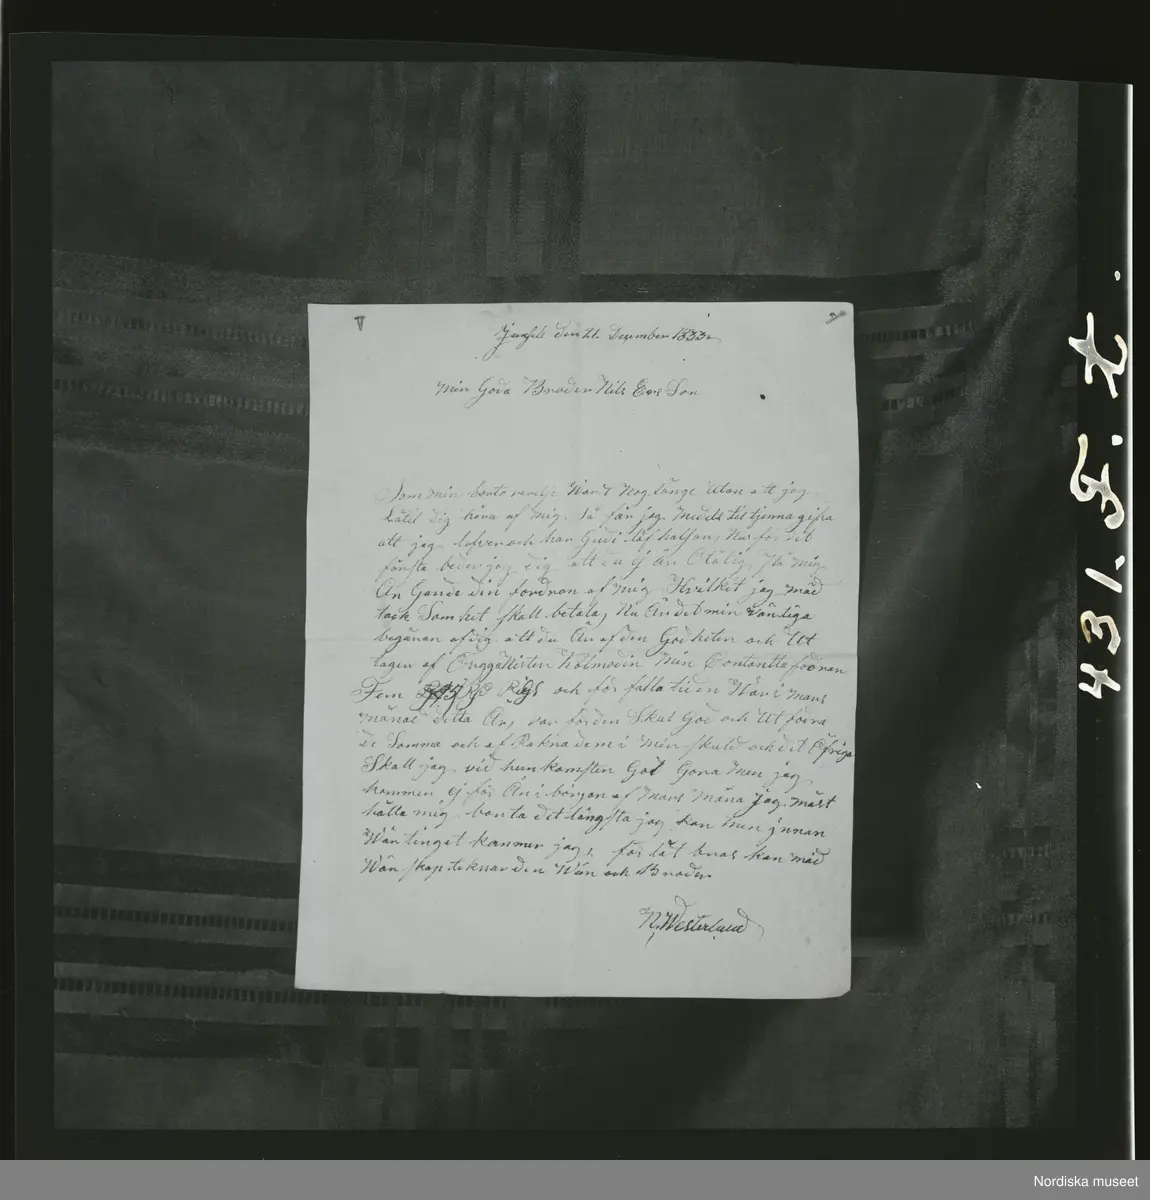 Junsele den 21. December 1833.
Min Goda Broder Nils Ers Son
Som min borta varelse Varit Nog länge Utan att jag
låtit dig höra af mig. Så får jag medels til tjenna gifva
att jag lefver och har Guds låf halsan, Nu för det
första beder jag dig att du ej är Otålig på mig
An Gande din fordran af mig Hvilket jag mäd
tack Samhet skall betala, Nu Är det min vänliga
begäran af dig att du Är af den Godheten och Ut
tagen af Min Contantta fodran
Fem Rigs och för falla tiden War i Mars
månat detta År, var för den Skul God och Ut fodra
De Somma och af Räkna dem i Min skuld och det Öfriga
Skall jag vid hem komsten Got Göra Men jag
kommer ej för Än i början af Mars Måna jag måst
hålla mig borta det längsta jag kan Men jnnan
Wårtinget kommer jag, för låt hvas kan mäd
Wän skap teknar den Wän och Broder
N. Westerlund
431. F. t.
Nordiska museet